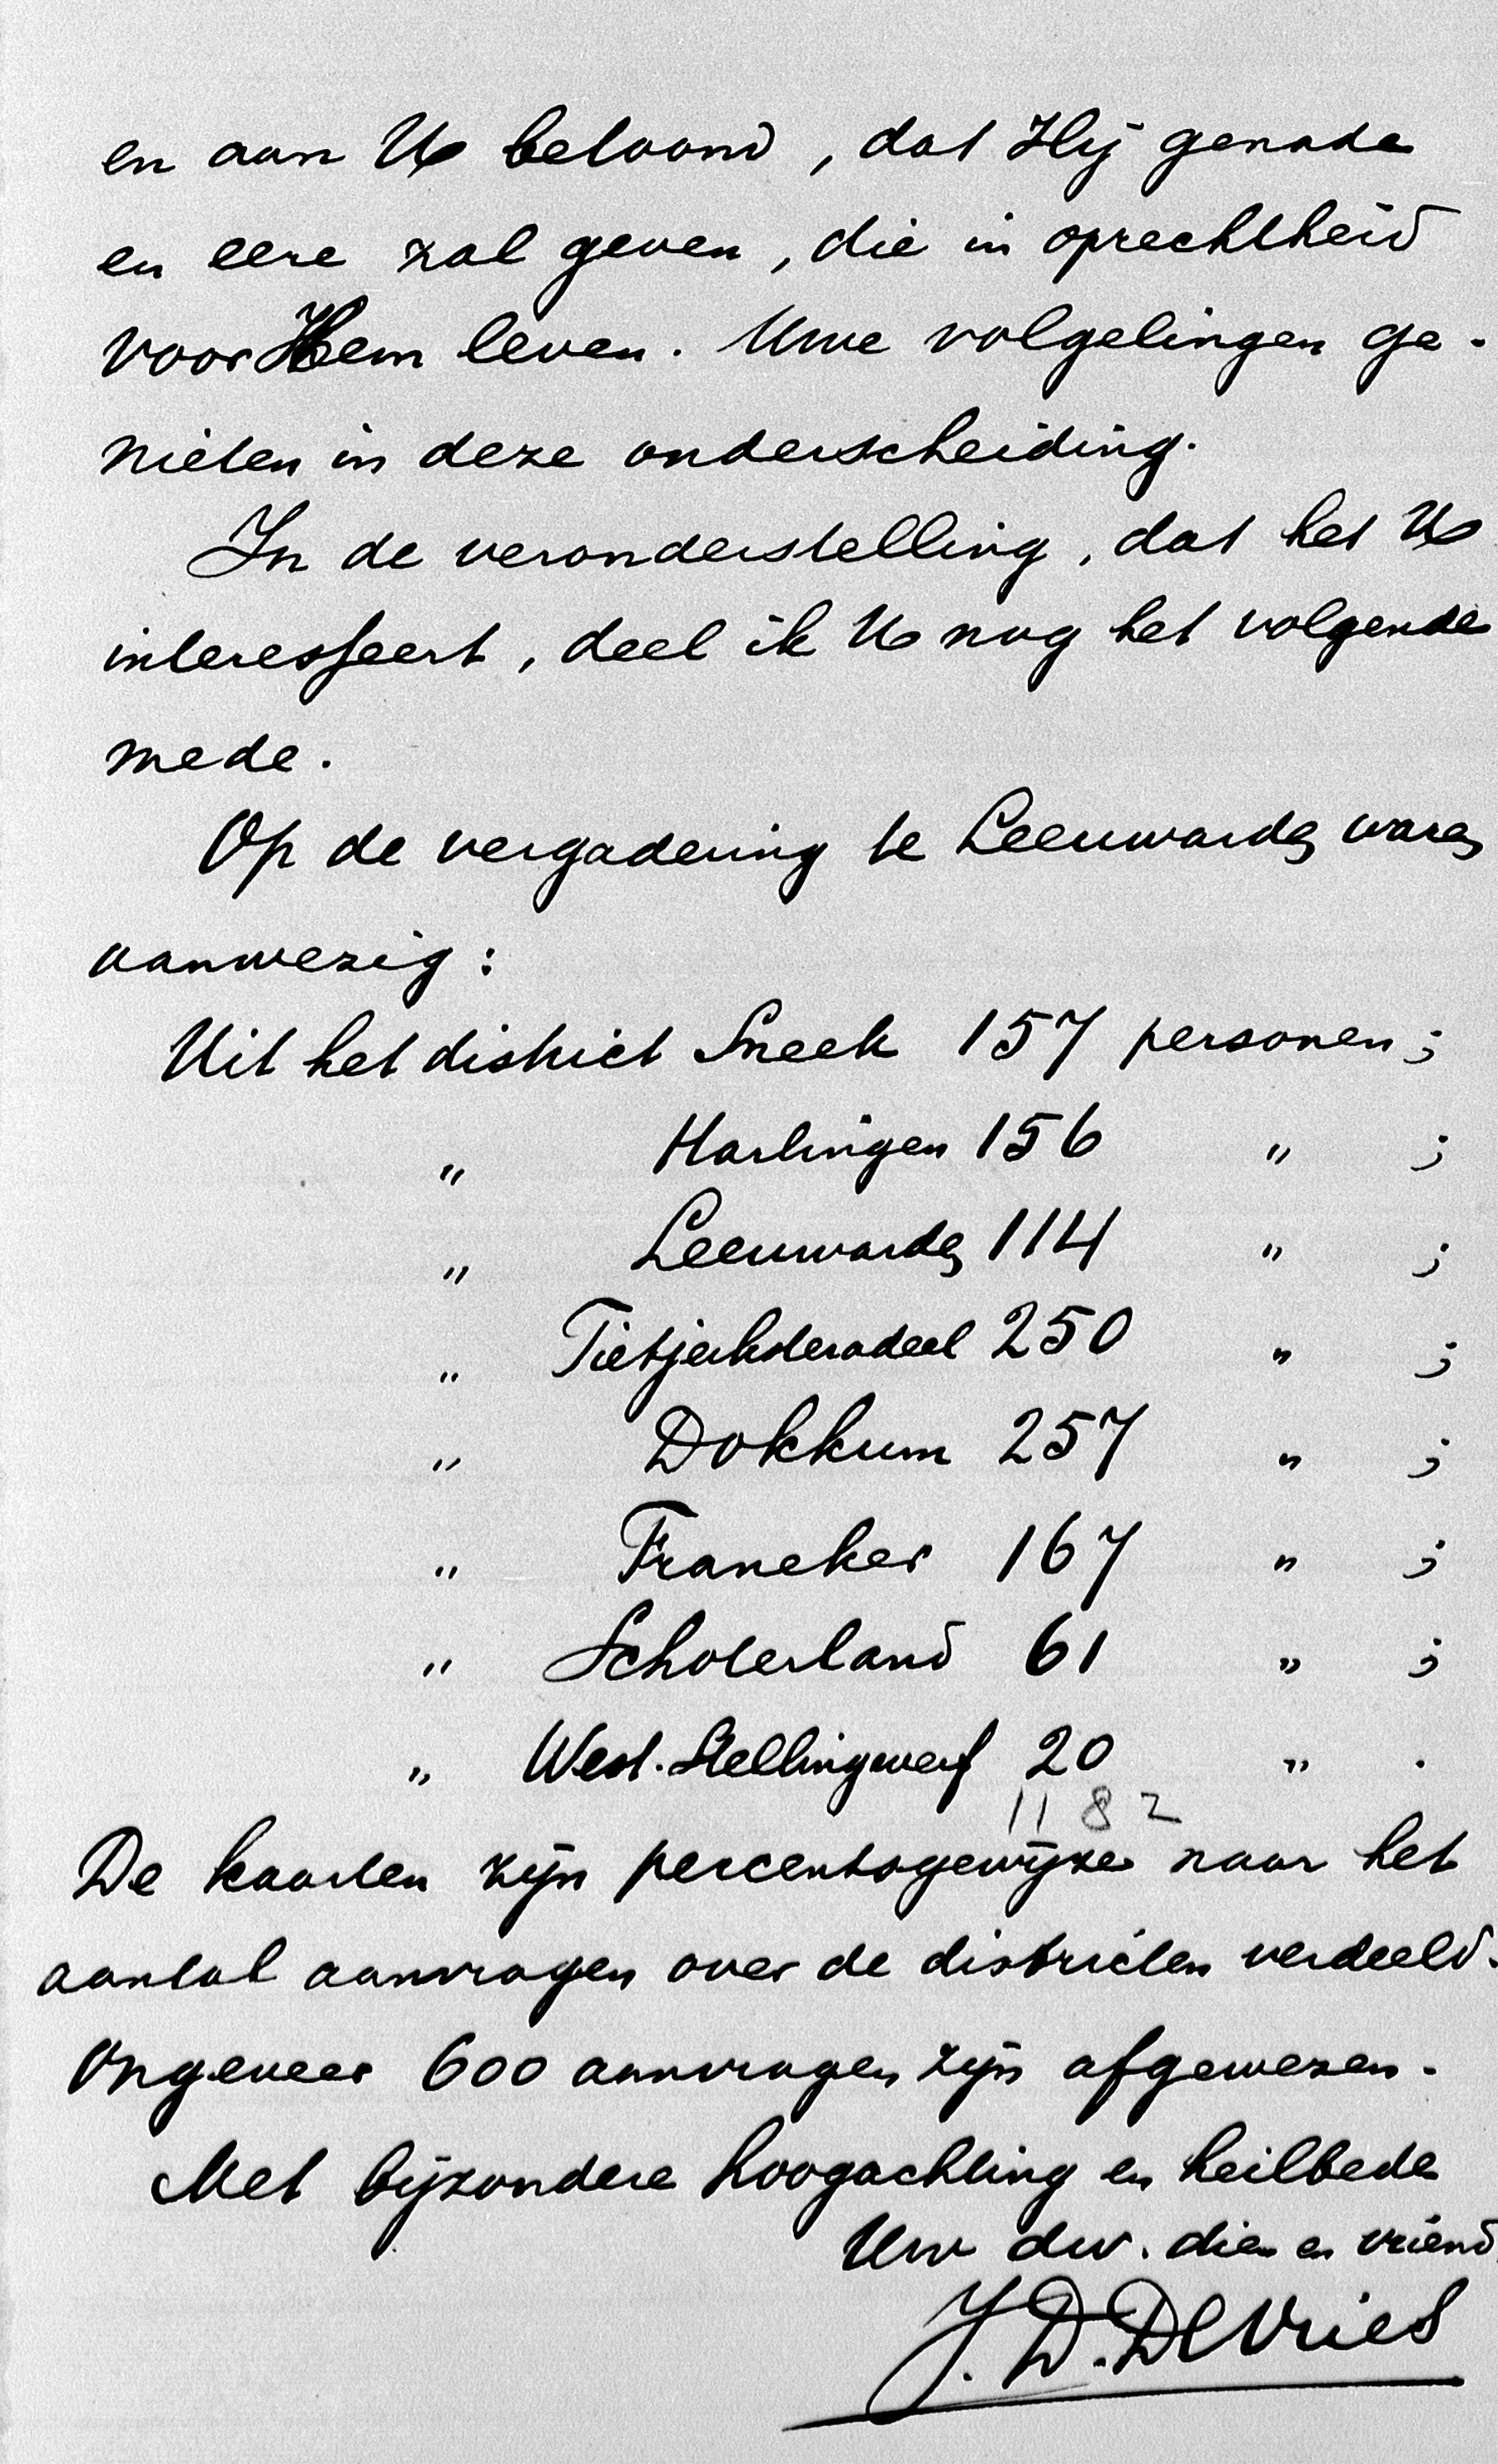 en aan U beloond, dat Hij genade
en eere zal geven, die in oprechtheid
voor Hem leven. Uwe volgelingen ge-
nieten in deze onderscheiding.
In de veronderstelling, dat het U
interesseert, deel ik U nog het volgende
mede.
Op de vergadering te Leeuwarden waren
aanwezig:
Uit het district Sneek 157 personen;
" Harlingen 156 " ;
" Leeuwarden 114 " ;
" Tietjerksteradeel 250 " ;
" Dokkum 257 " ;
" Franeker 167 " ;
" Schoterland 61 " ;
" West-Stellingwerf 20 " .
1182
De kaarten zijn percentagewijze naar het
aantal aanvragen over de districten verdeeld.
Ongeveer 600 aanvragen zijn afgewezen.
Met bijzondere hoogachting en heilbede
Uw dw. dien en vriend
J. D. De Vries